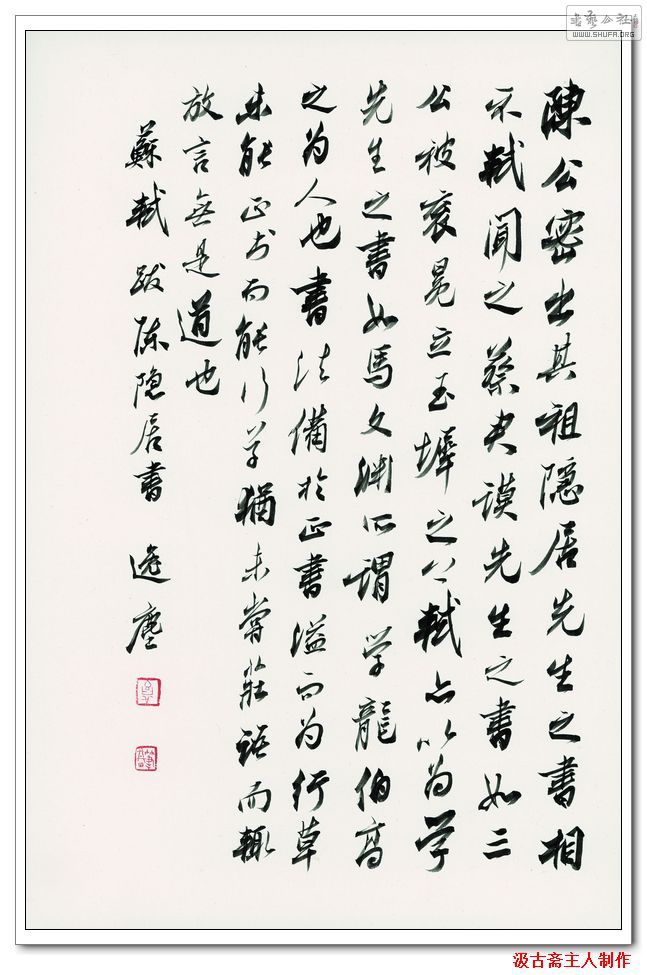 陳公密出其祖隱居先生之書相
示軾聞之蔡君謨先生之書如三
公被衮冕立玉墀之上軾亦以為学
先生之書如馬文渊所謂学龍伯高
之为人也書法備於正書溢而为行草
未能正书而能行草猶未嘗莊語而輒
放言無是道也
蘇軾跋陈隐居書 逸塵
書艺公社
WWW.SHUFA.ORG
汲古斋主人制作